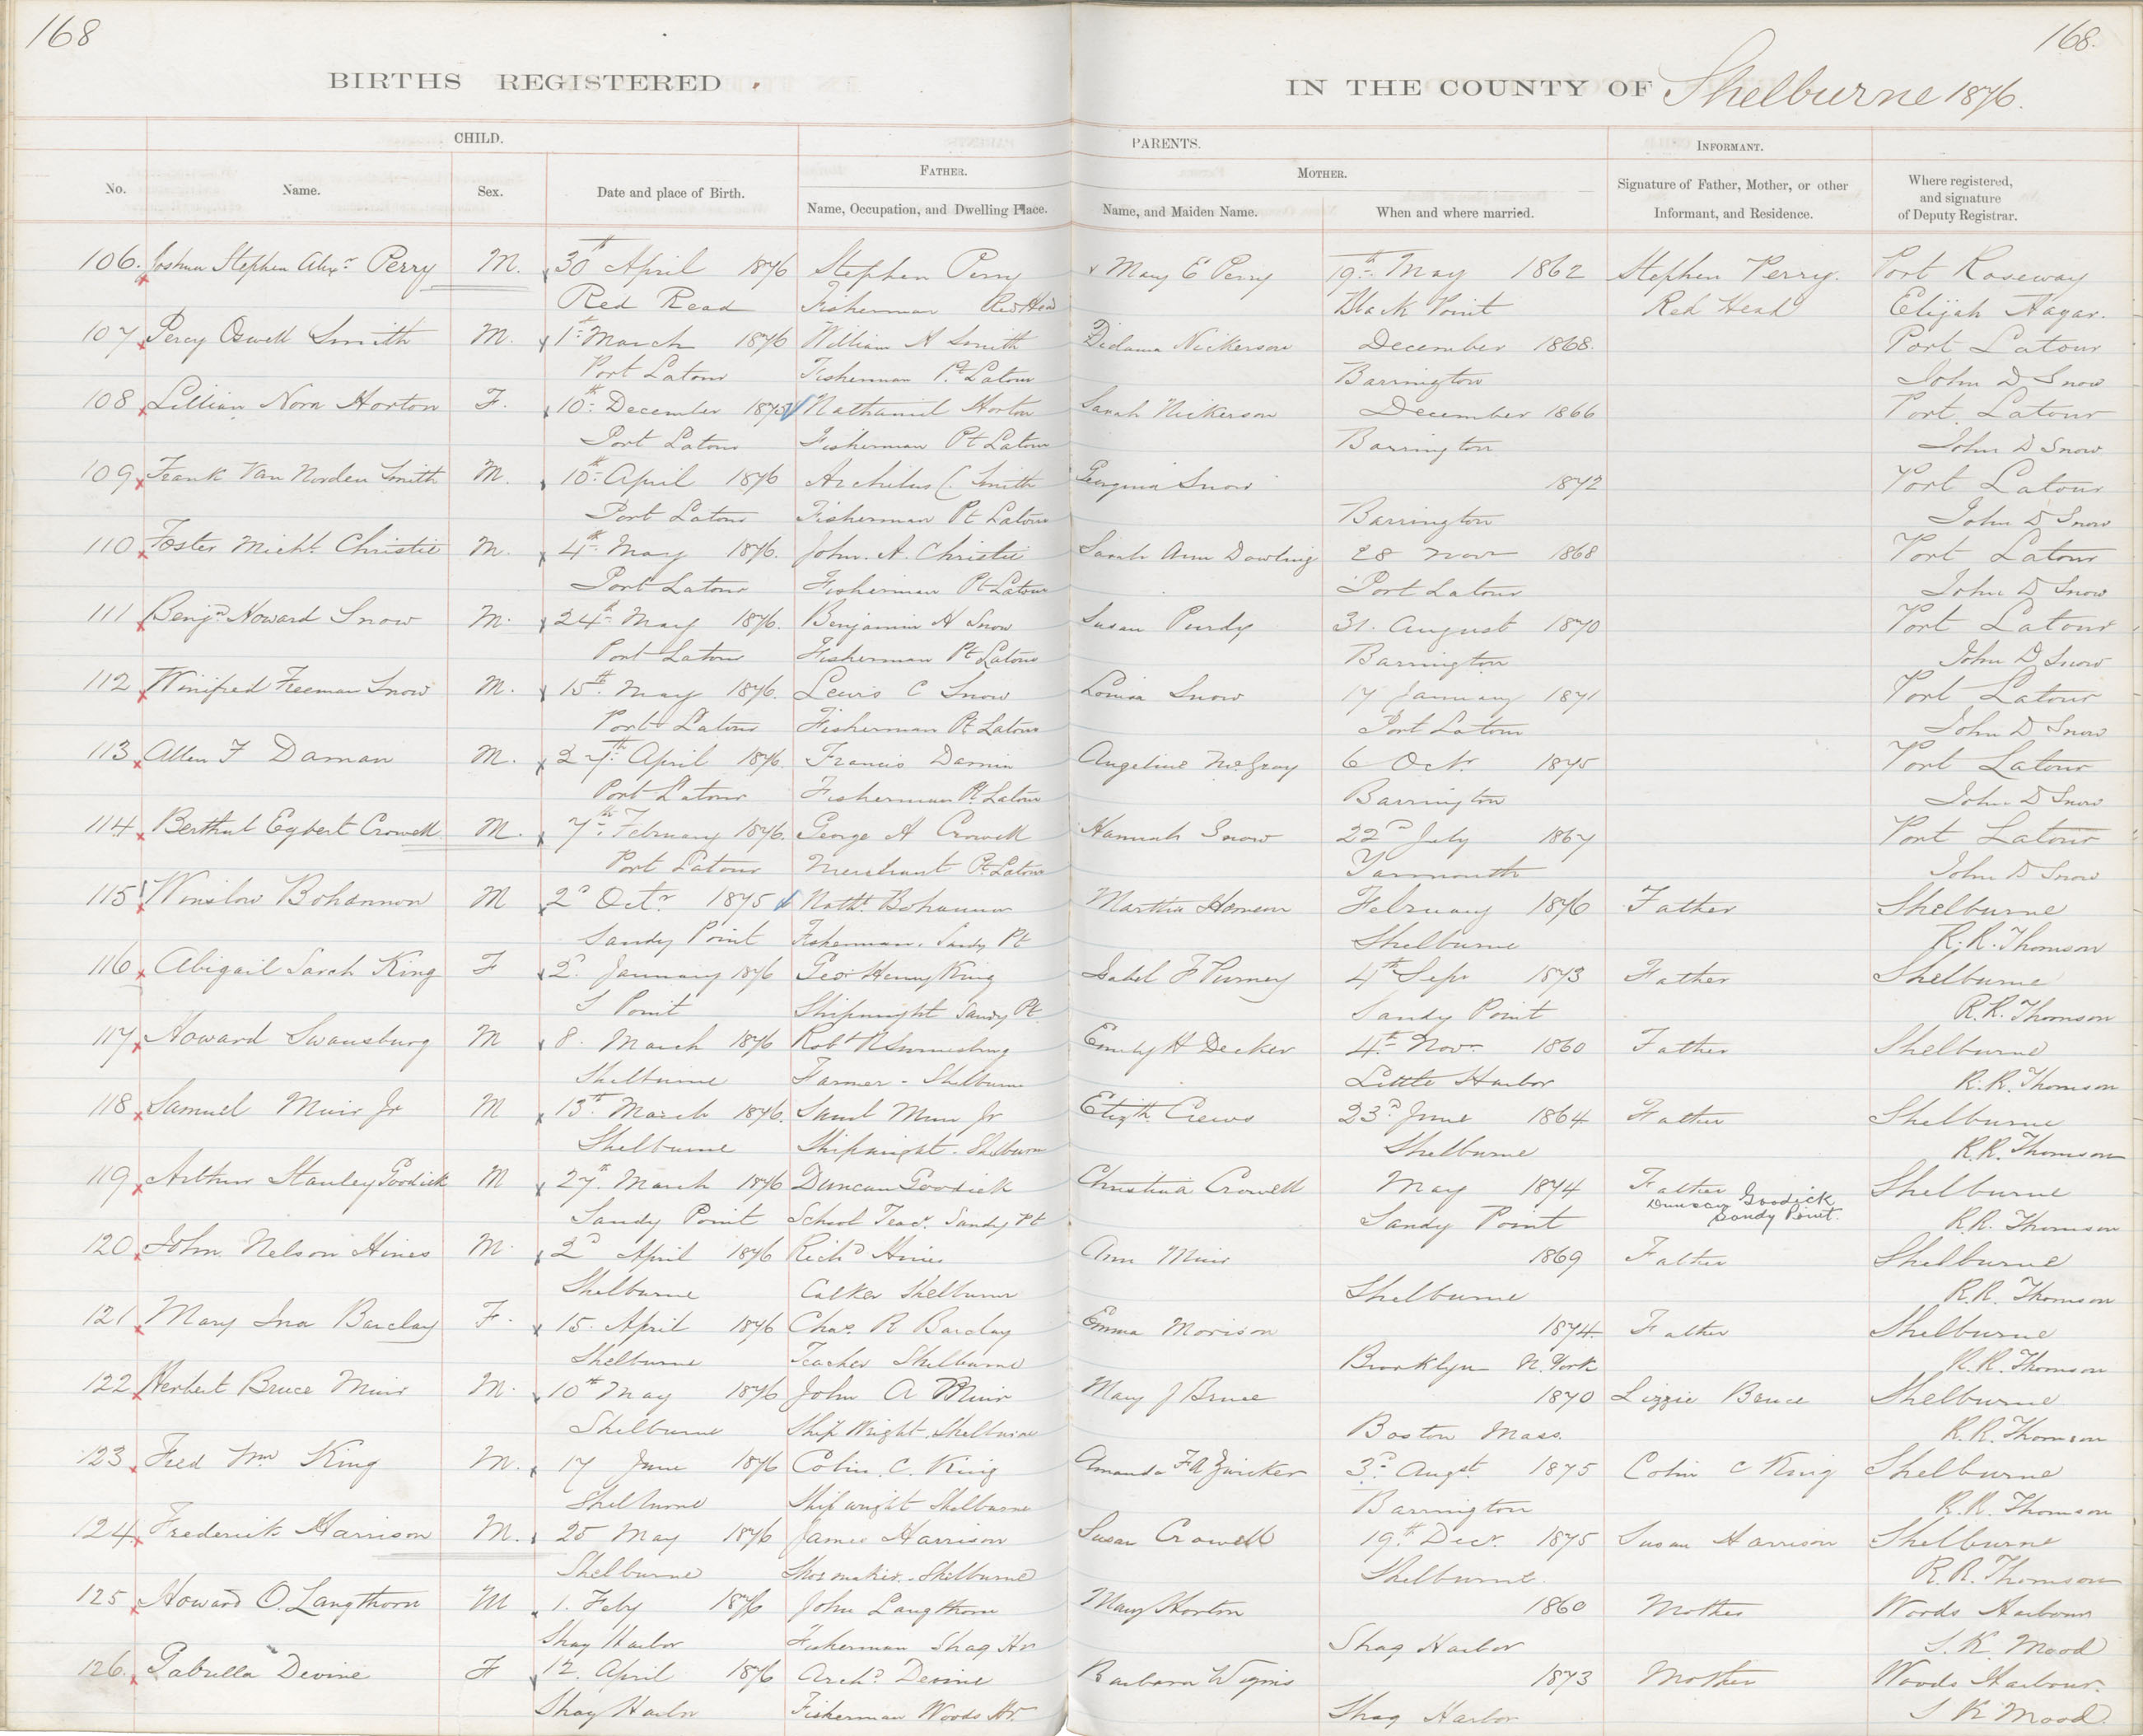 168
168.
BIRTHS REGISTERED
IN THE COUNTY OF Shelburne 1876.
CHILD.
PARENTS.
INFORMANT.
FATHER.
MOTHER.
No.
Name.
Sex.
Date and place of Birth.
Name, Occupation, and Dwelling Place.
Name, and Maiden Name.
When and where married.
Signature of Father, Mother, or other
Informant, and Residence.
Where registered,
and signature
of Deputy Registrar.
106. Joshua Stephen Alexr Perry M. 30th April 1876 Stephen Perry Mary E Perry 19th May 1862 Stephen Perry. Port Roseway
Red Read Fisherman Red Head Black Point Red Head Elijah Hagar.
107 Percy Oswell Smith M. 1st March 1876 William A Smith Didama Nickerson December 1868. Port Latour
Port Latour Fisherman Pt Latour Barrington John D Snow
108 Lillian Nora Horton F. 10th December 1875 Nathaniel Horton Sarah Nickerson December 1866 Port Latour
Port Latour Fisherman Pt Latour Barrington John D Snow
109 Frank Van Norden Smith M. 10th April 1876 Archilus C. Smith Georgina Snow 1872 Port Latour
Port Latour Fisherman Pt Latour Barrington John D Snow
110 Foster Michl Christie M. 4th May 1876. John. A. Christie Sarah Ann Dowling 28 Novr 1868 Port Latour
Port Latour Fisherman Pt Latour Port Latour John D Snow
111 Benjn Howard Snow M. 24th May 1876. Benjamin H Snow Susan Purdy 31. August 1870 Port Latour
Port Latour Fisherman Pt Latour Barrington John D Snow
112 Winifred Freeman Snow M. 15th May 1876. Lewis C Snow Louisa Snow 17 January 1871 Port Latour
Port Latour Fisherman Pt Latour Port Latour John D Snow
113 Allen F Daman M. 27th April 1876. Francis Damin Angeline McGray 6 Octr 1875 Port Latour
Port Latour Fisherman Pt Latour Barrington John D Snow
114 Berthal Egbert Crowell M. 7th February 1876. George A Crowell Hannah Snow 22d July 1867 Port Latour
Port Latour Merchant Pt Latour Yarmouth John D Snow
115 Winslow Bohannon M 2d Octr 1875 Nathl Bohannon Martha February 1876 Father Shelburne
Sandy Point Fisherman. Sandy Pt Shelburne R. R. Thomson
116 Abigail Sarah King F 2d January 1876 Geo Henry King Isabel F Purney 4th Sepr 1873 Father Shelburne
S Point Shipwright Sandy Pt Sandy Point R. R. Thomson
117 Howard Swansburg M 8. March 1876 Robt Swansburg Emily H Decker 4th Novr 1860 Father Shelburne
Shelburne Farmer - Shelburne Little Harbor R. R. Thomson
118 Samuel Muir Jr M 13th March 1876. Saml Muir Jr Elizth Crews 23d June 1864 Father Shelburne
Shelburne Shipwright - Shelburne Shelburne R. R. Thomson
119 Arthur Stanley Goodick M 27th March 1876 Duncan Goodick Christina Crowell May 1874 Father Shelburne
Duncan Goodick
Sandy Point School Teacr. Sandy Pt Sandy Point Sandy Point. R. R. Thomson
120 John Nelson Hines M. 2d April 1876 Richd Hines Ann Muir 1869 Father Shelburne
Shelburne Calker Shelburne Shelburne R. R. Thomson
121 Mary Ina Barclay F. 15. April 1876 Chas. R Barclay Emma Morison 1874. Father Shelburne
Shelburne Teacher Shelburne Brooklyn N. York R. R. Thomson
122 Herbert Bruce Muir M. 10th May 1876 John A Muir Mary J Bruce 1870 Lizzie Bruce Shelburne
Shelburne Ship Wright Shelburne Boston Mass. R. R. Thomson
123 Fred Wm King M. 17 June 1876 Colin. C. King Amanda F A Zwicker 3d Augst 1875 Colin C King Shelburne
Shelburne Shipwright Shelburne Barrington R. R. Thomson
124 Frederick Harrison M. 25 May 1876 James Harrison Susan Crowell 19th Decr. 1875 Susan Harrison Shelburne
Shelburne Shoemaker. Shelburne Shelburne R. R. Thomson
125 Howard O. Langthorn M 1. Feby 1876 John Langthorn Mary Horton 1860 Mother Woods Harbour
Shag Harbor Fisherman Shag Hr Shag Harbor S. K. Mood
126. Gabrella Devine F 12. April 1876 Archd. Devine Barbara 1873 Mother Woods Harbour.
Shag Harbor Fisherman Woods Hr. Shag Harbor S K Mood.